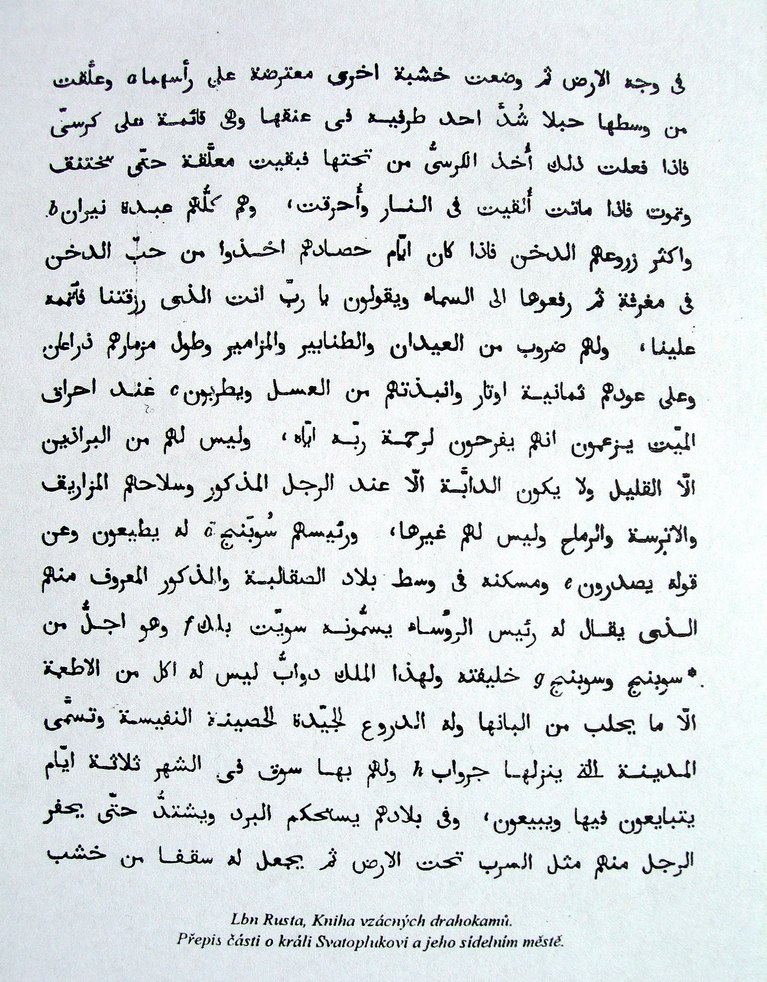 فى وجه الارض ثم وضعت خشبة اخرى معترضة على رأسهما a وعلّقت
من وسطها حبلا شُدَّ احد طرفيه فى عنقها وهى قائمة على كرسىّ
فاذا فعلت ذلك أُخذ الكرسىُّ من تحتها فبقيت معلَّقة حتّى تختنق
وتموت فاذا ماتت أُلقيت فى النار وأُحرقت، وهم كلُّهم عبدة نيران b
واكثر زروعهم الدخن فاذا كان ايّام حصادهم اخذوا من حبّ الدخن
فى مغرفة ثم رفعوها الى السماء ويقولون يا ربّ انت الذى رزقتنا فأتممه
علينا، ولهم ضروب من العيدان والطنابير والمزامير وطول مزمارهم ذراعان
وعلى عودهم ثمانية اوتار وانبذتهم من العسل ويطربون c عند احراق
الميّت يزعمون انهم يفرحون لرحمة ربّه ايّاه، وليس لهم من البراذين
الّا القليل ولا يكون الدابّة الّا عند الرجل المذكور وسلاحهم المزاريق
والاترسة والرماح وليس لهم غيرها، ورئيسهم سُوبَنج d له يطيعون وعن
قوله يصدرون e ومسكنه فى وسط بلاد الصقالبة والمذكور المعروف منهم
الذى يقال له رئيس الرؤُساء يسمُّونه سويّت بلك f وهو اجلُّ من
*سوبنج وسوبنج g خليفته ولهذا الملك دوابُّ ليس له اكل من الاطعمة
الّا ما يحلب من البانها وله الدروع الجيّدة الحصينة النفيسة وتسمَّى
المدينة الّتى ينزلها جرواب h ولهم بها سوق فى الشهر ثلاثة ايّام
يتبايعون فيها ويبيعون، وفى بلادهم يستحكم البرد ويشتدُّ حتّى يحفر
الرجل منهم مثل السرب تحت الارض ثم يجعل له سقفا من خشب
Lbn Rusta, Kniha vzácných drahokamů.
Přepis části o králi Svatoplukovi a jeho sídelním městě.